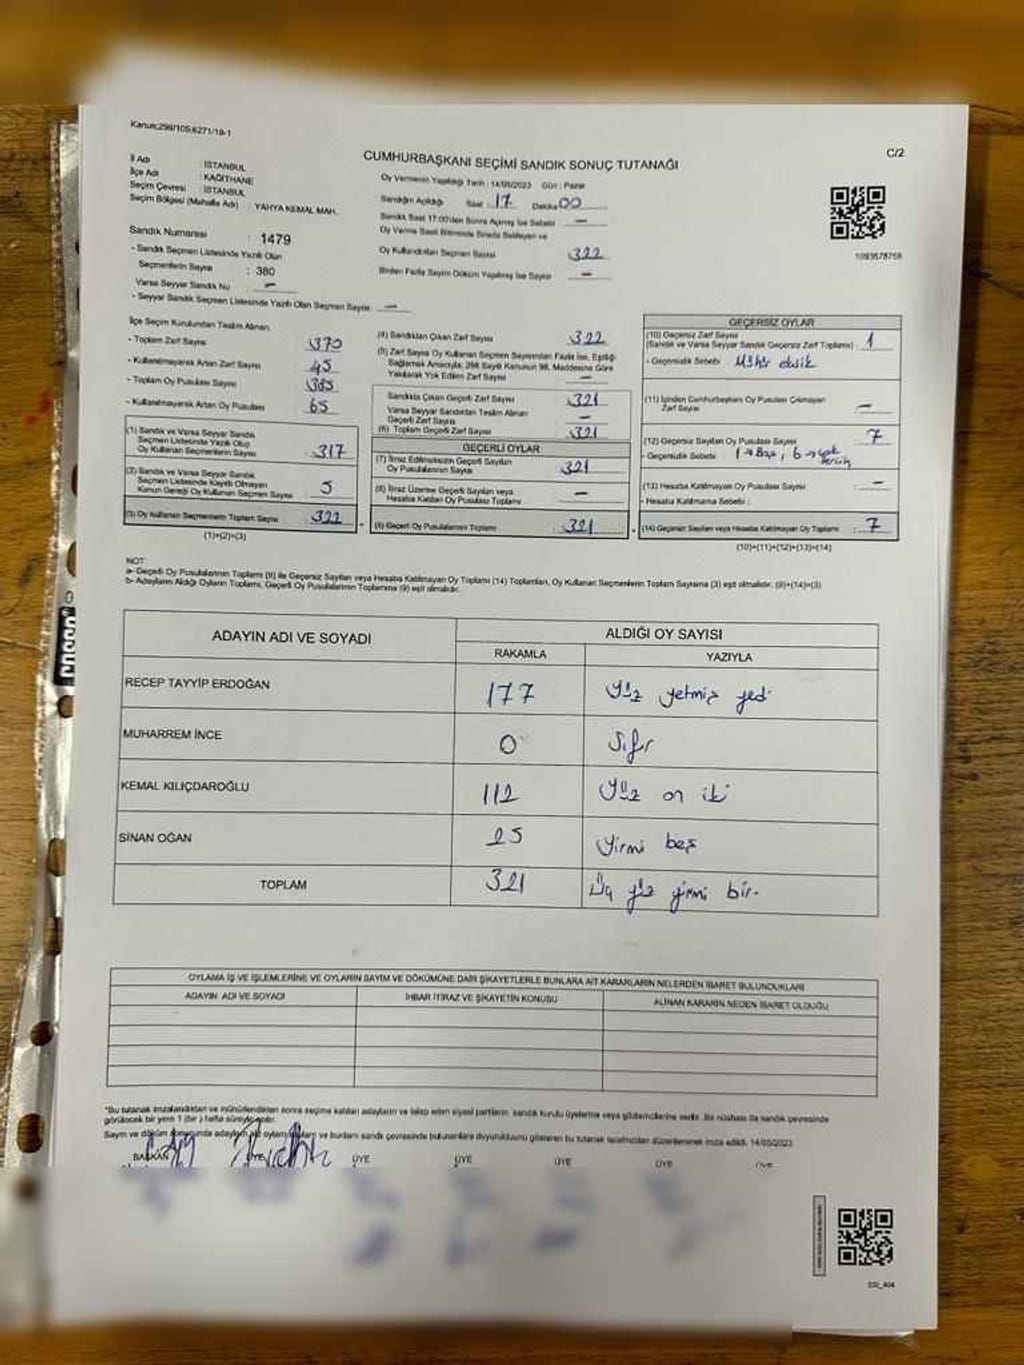 Kanun:298/105;6271/18-1
C/2
CUMHURBAŞKANI SEÇİMİ SANDIK SONUÇ TUTANAĞI
İl Adı : İSTANBUL
İlçe Adı : KAĞITHANE
Seçim Çevresi : İSTANBUL
Seçim Bölgesi (Mahalle Adı) : YAHYA KEMAL MAH.
Sandık Numarası : 1479
- Sandık Seçmen Listesinde Yazılı Olan
Seçmenlerin Sayısı : 380
Varsa Seyyar Sandık No –
- Seyyar Sandık Seçmen Listesinde Yazılı Olan Seçmen Sayısı: –
Oy Vermenin Yapıldığı Tarih : 14/05/2023 Gün : Pazar
Sandığın Açıldığı Saat : 17 Dakika 00
Sandık Saat 17.00'den Sonra Açılmış İse Sebebi –
Oy Verme Saati Bitiminde Sırada Bekleyen ve
Oy Kullandırılan Seçmen Sayısı 322
Birden Fazla Sayım Döküm Yapılmış İse Sayısı –
1093678758
İlçe Seçim Kurulundan Teslim Alınan
- Toplam Zarf Sayısı 370
- Kullanılmayarak Artan Zarf Sayısı 45
- Toplam Oy Pusulası Sayısı 385
- Kullanılmayarak Artan Oy Pusulası 65
(1) Sandık ve Varsa Seyyar Sandık
Seçmen Listesinde Yazılı Olup
Oy Kullanan Seçmenlerin Sayısı : 317
(2) Sandık ve Varsa Seyyar Sandık
Seçmen Listesinde Kayıtlı Olmayan
Kanun Gereği Oy Kullanan Seçmen Sayısı : 5
(3) Oy Kullanan Seçmenlerin Toplam Sayısı : 322
(1)+(2)=(3)
(4) Sandıktan Çıkan Zarf Sayısı 322
(5) Zarf Sayısı Oy Kullanan Seçmen Sayısından Fazla İse, Eşitliği
Sağlamak Amacıyla; 298 Sayılı Kanunun 98. Maddesine Göre
Yakılarak Yok Edilen Zarf Sayısı –
Sandıkta Çıkan Geçerli Zarf Sayısı 321
Varsa Seyyar Sandıktan Teslim Alınan
Geçerli Zarf Sayısı –
(6) Toplam Geçerli Zarf Sayısı 321
GEÇERLİ OYLAR
(7) İtiraz Edilmeksizin Geçerli Sayılan
Oy Pusulalarının Sayısı 321
(8) İtiraz Üzerine Geçerli Sayılan veya
Hesaba Katılan Oy Pusulası Toplamı –
(9) Geçerli Oy Pusulalarının Toplamı : 321
GEÇERSİZ OYLAR
(10) Geçersiz Zarf Sayısı
(Sandık ve Varsa Seyyar Sandık Geçersiz Zarf Toplamı) : 1
- Geçersizlik Sebebi : Mühür eksik
(11) İçinden Cumhurbaşkanı Oy Pusulası Çıkmayan
Zarf Sayısı –
(12) Geçersiz Sayılan Oy Pusulası Sayısı 7
- Geçersizlik Sebebi : 1→Boş, 6→çok tercih
(13) Hesaba Katılmayan Oy Pusulası Sayısı –
- Hesaba Katılmama Sebebi :
(14) Geçersiz Sayılan veya Hesaba Katılmayan Oy Toplamı : 7
(10)+(11)+(12)+(13)=(14)
NOT:
a- Geçerli Oy Pusulalarının Toplamı (9) ile Geçersiz Sayılan veya Hesaba Katılmayan Oy Toplamı (14) Toplamları, Oy Kullanan Seçmenlerin Toplam Sayısına (3) eşit olmalıdır. (9)+(14)=(3)
b- Adayların Aldığı Oyların Toplamı, Geçerli Oy Pusulalarının Toplamına (9) eşit olmalıdır.
ADAYIN ADI VE SOYADI ALDIĞI OY SAYISI
RAKAMLA YAZIYLA
RECEP TAYYİP ERDOĞAN 177 Yüz yetmiş yedi
MUHARREM İNCE 0 Sıfır
KEMAL KILIÇDAROĞLU 112 Yüz on iki
SİNAN OĞAN 25 Yirmi beş
TOPLAM 321 Üç yüz yirmi bir
OYLAMA İŞ VE İŞLEMLERİNE VE OYLARIN SAYIM VE DÖKÜMÜNE DAİR ŞİKAYETLERLE BUNLARA AİT KARARLARIN NELERDEN İBARET BULUNDUKLARI
ADAYIN ADI VE SOYADI İHBAR İTİRAZ VE ŞİKAYETİN KONUSU ALINAN KARARIN NEDEN İBARET OLDUĞU
*Bu tutanak imzalandıktan ve mühürlendikten sonra seçime katılan adayların ve talep eden siyasi partilerin, sandık kurulu üyelerine veya gözlemcilerine verilir. Bir nüshası da sandık çevresinde
görülecek bir yere 1 (bir) hafta süreyle asılır.
Sayım ve döküm sonucunda adayların oylarını ve bunların sandık çevresinde bulunanlara duyurulduğunu gösteren bu tutanak tarafımızdan düzenlenerek imza edildi. 14/05/2023
BAŞKAN ÜYE ÜYE ÜYE ÜYE ÜYE ÜYE
SSI_404